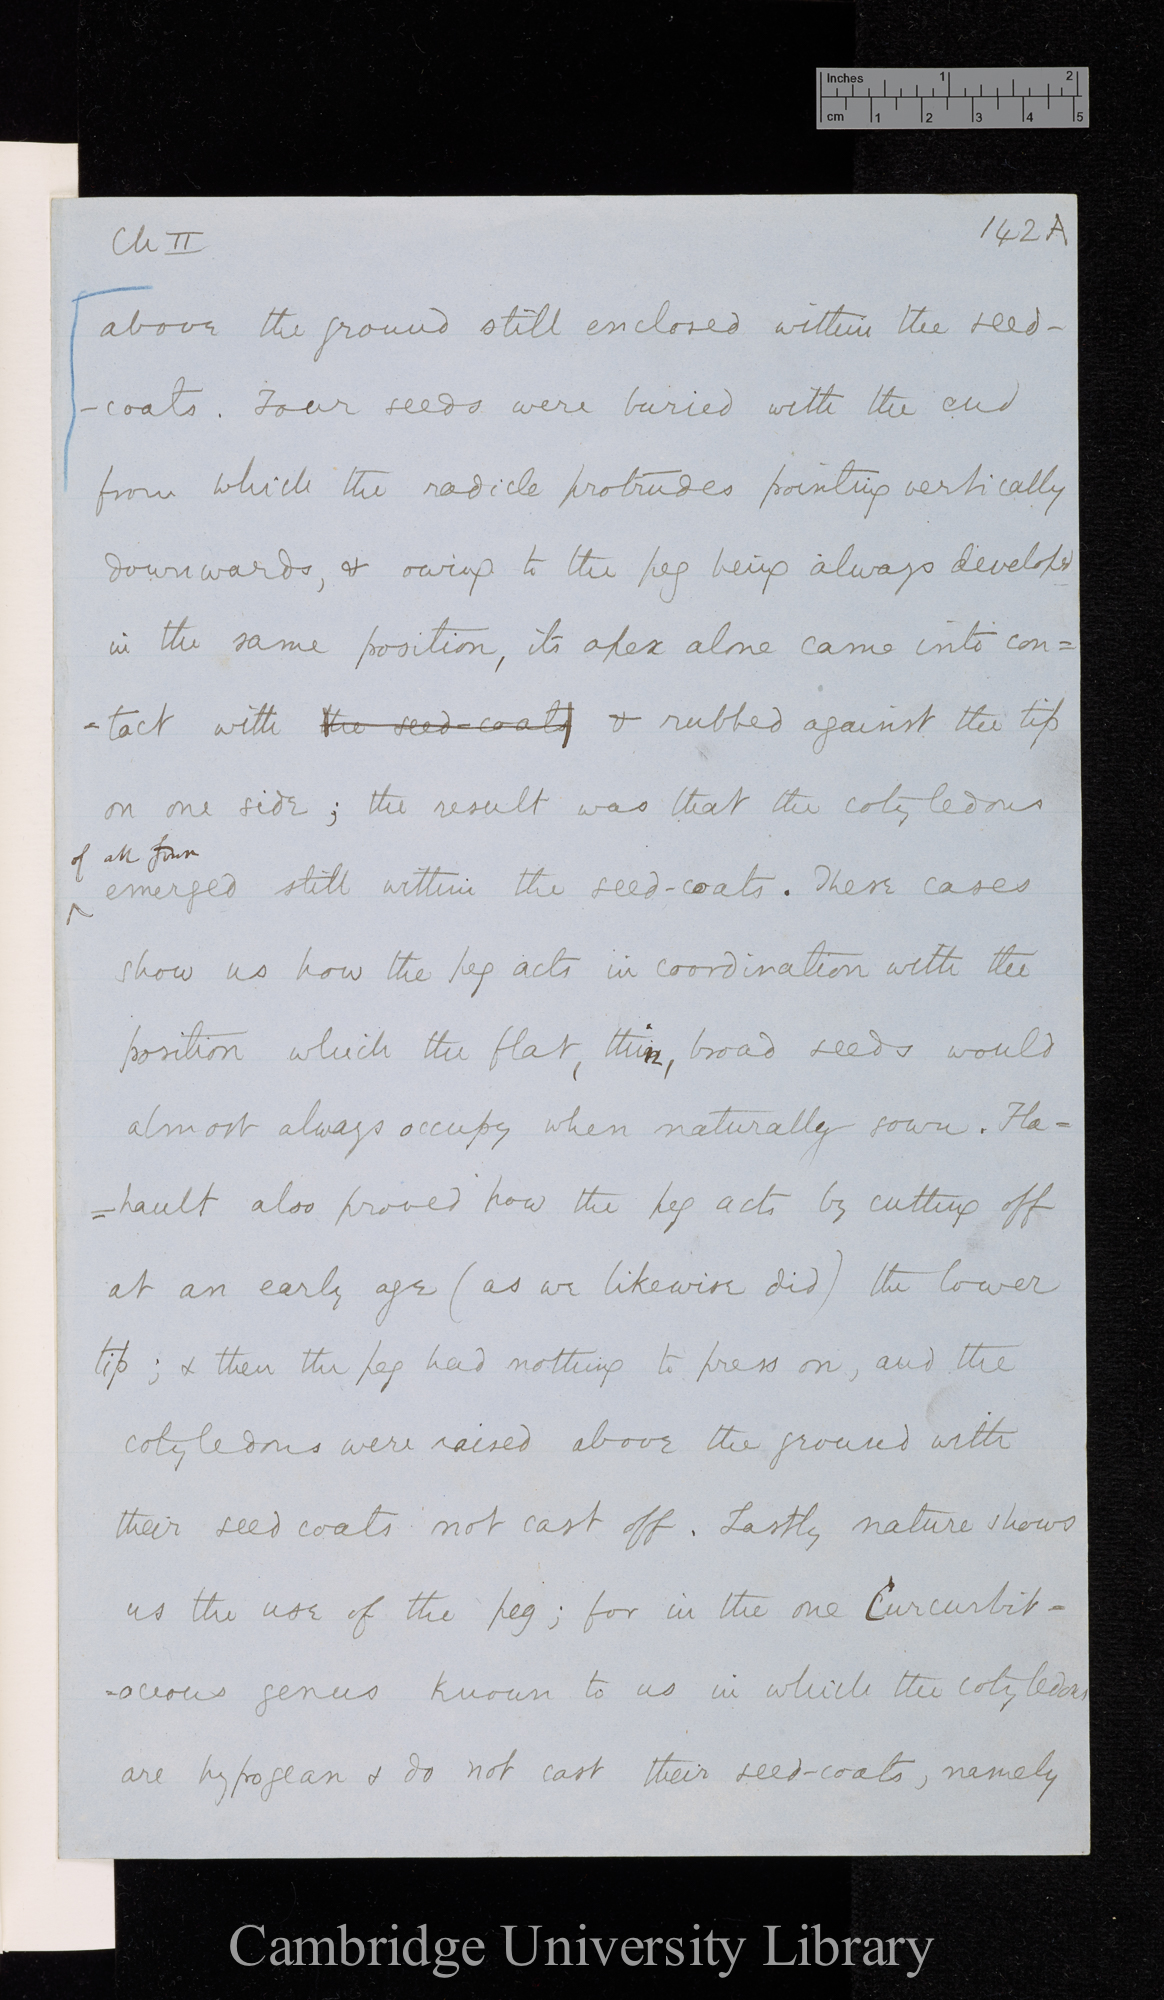 Inches 1 2
cm 1 2 3 4 5
Ch II 142A
above the ground still enclosed within the seed-
-coats. Four seeds were buried with the end
from which the radicle protrudes pointing vertically
downwards, & owing to the peg being always developed
in the same position, its apex alone came into con=
=tact with the seed-coats & rubbed against the tip
on one side; the result was that the cotyledons
of all four
emerged still within the seed-coats. These cases
show us how the peg acts in coordination with the
position which the flat, thin, broad seeds would
almost always occupy when naturally sown. Fla=
=hault also proved how the peg acts by cutting off
at an early age (as we likewise did) the lower
tip; & then the peg had nothing to press on, and the
cotyledons were raised above the ground with
their seed coats not cast off. Lastly nature shows
us the use of the peg; for in the one Curcurbit=
=aceous genus known to us in which the cotyledons
are hypogean & do not cast their seed-coats, namely
Cambridge University Library